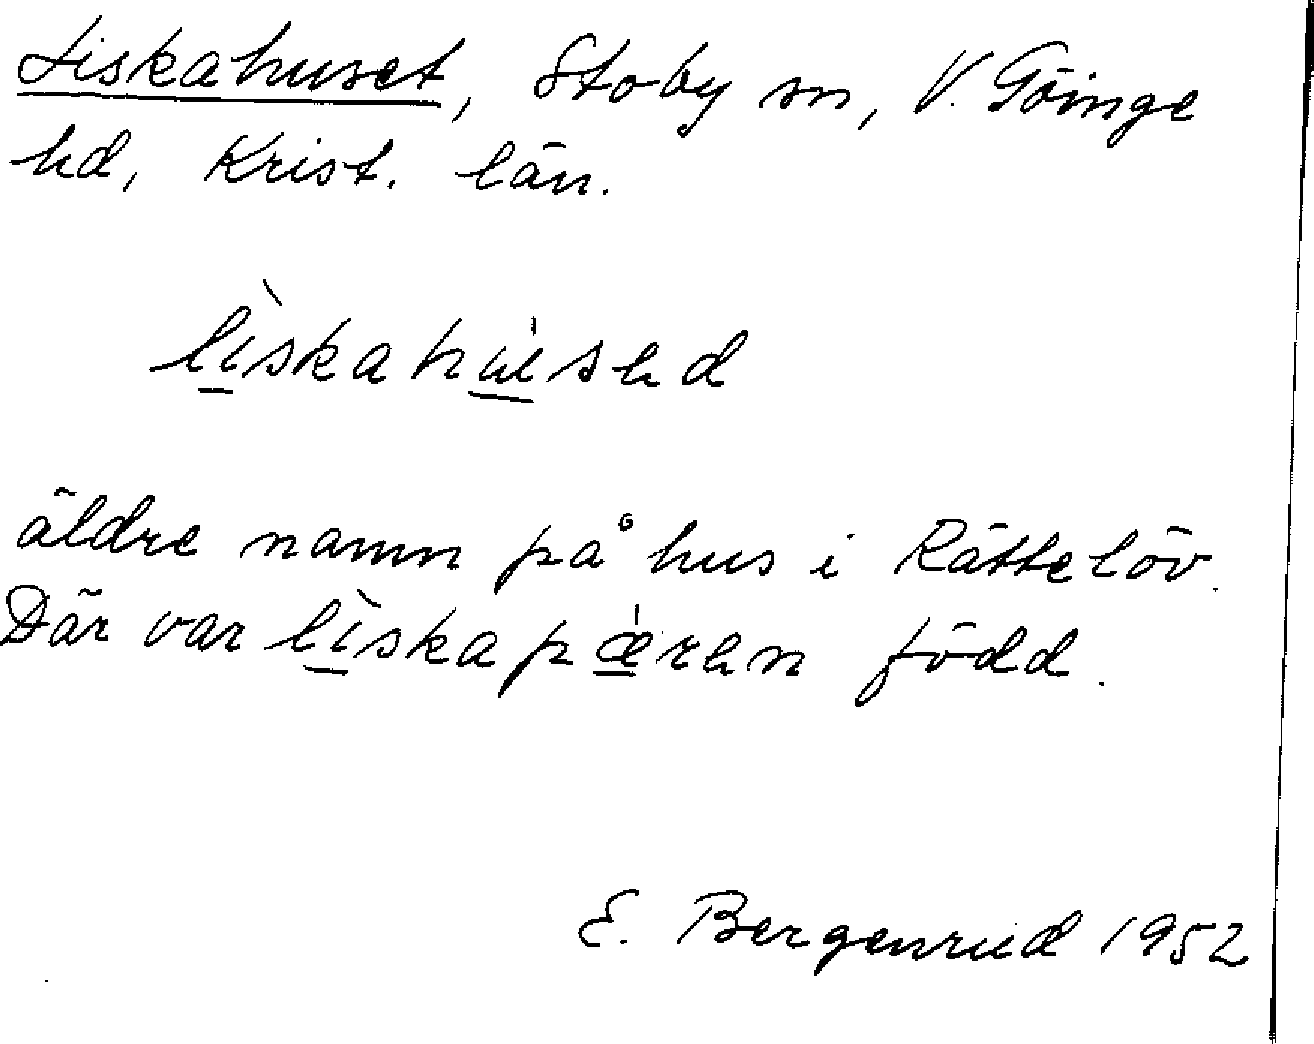 Liskahuset, Stoby sn, V. Göinge
hd, Krist. län.
lìskahu̇sɐd
äldre namn på hus i Rättelöv.
Där var lìskapæ̇rɐn född.
E. Bergenrud 1952